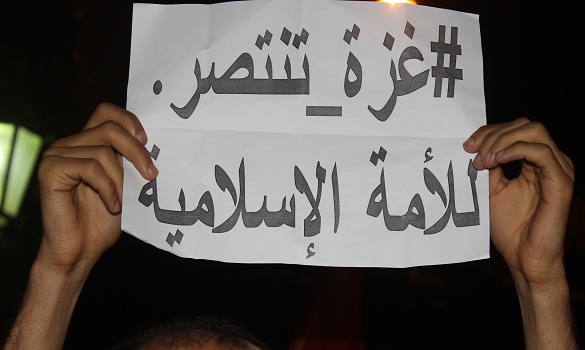 #غزة_تنتصر.
للأمة الإسلامية